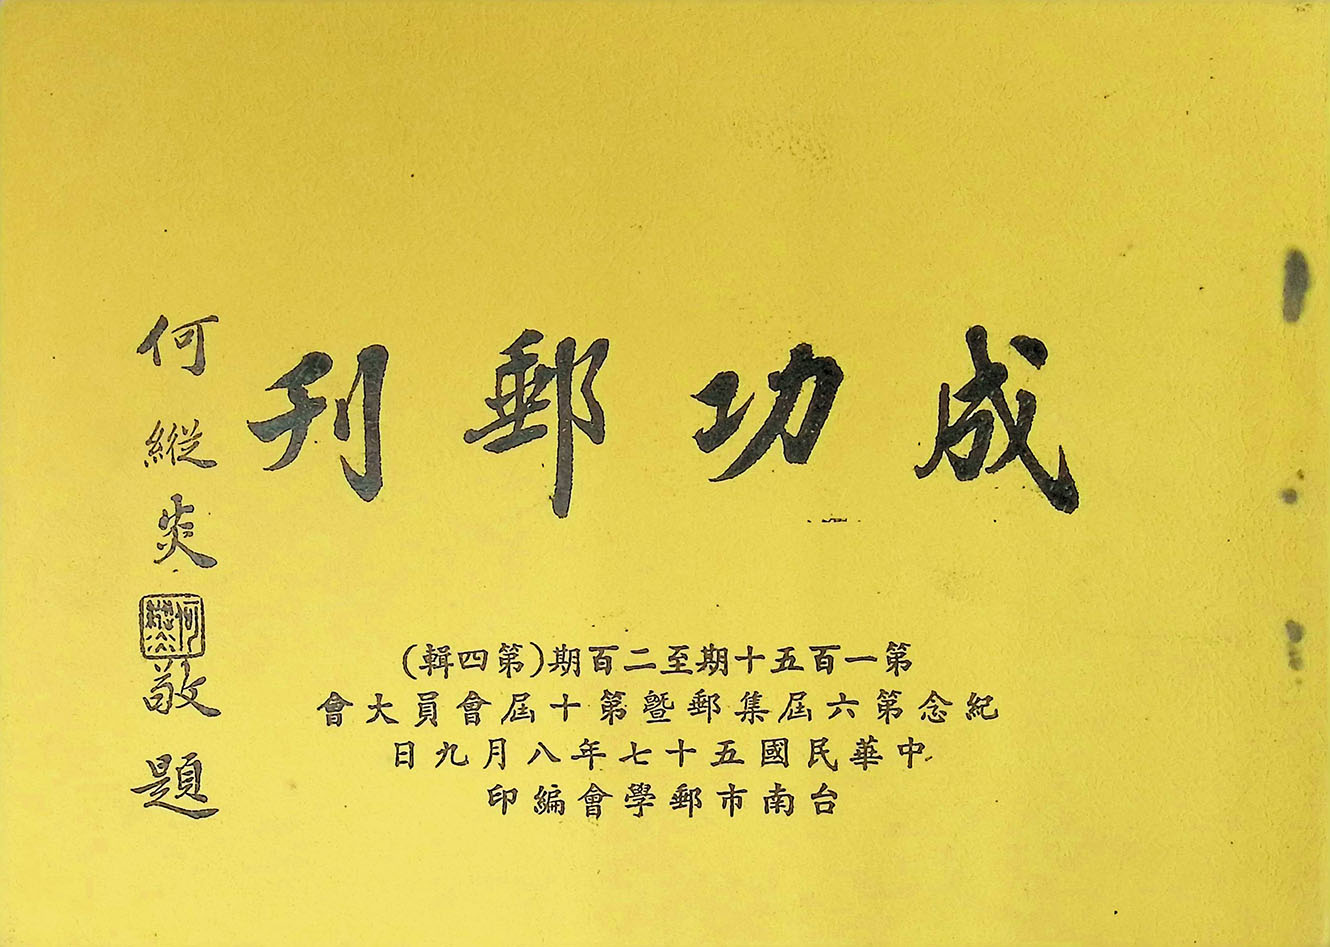 成功郵刊
何縱炎敬題
何縱炎
第一百五十期至二百期(第四輯)
紀念第六屆集郵暨第十屆會員大會
中華民國五十七年八月九日
台南市郵學會編印